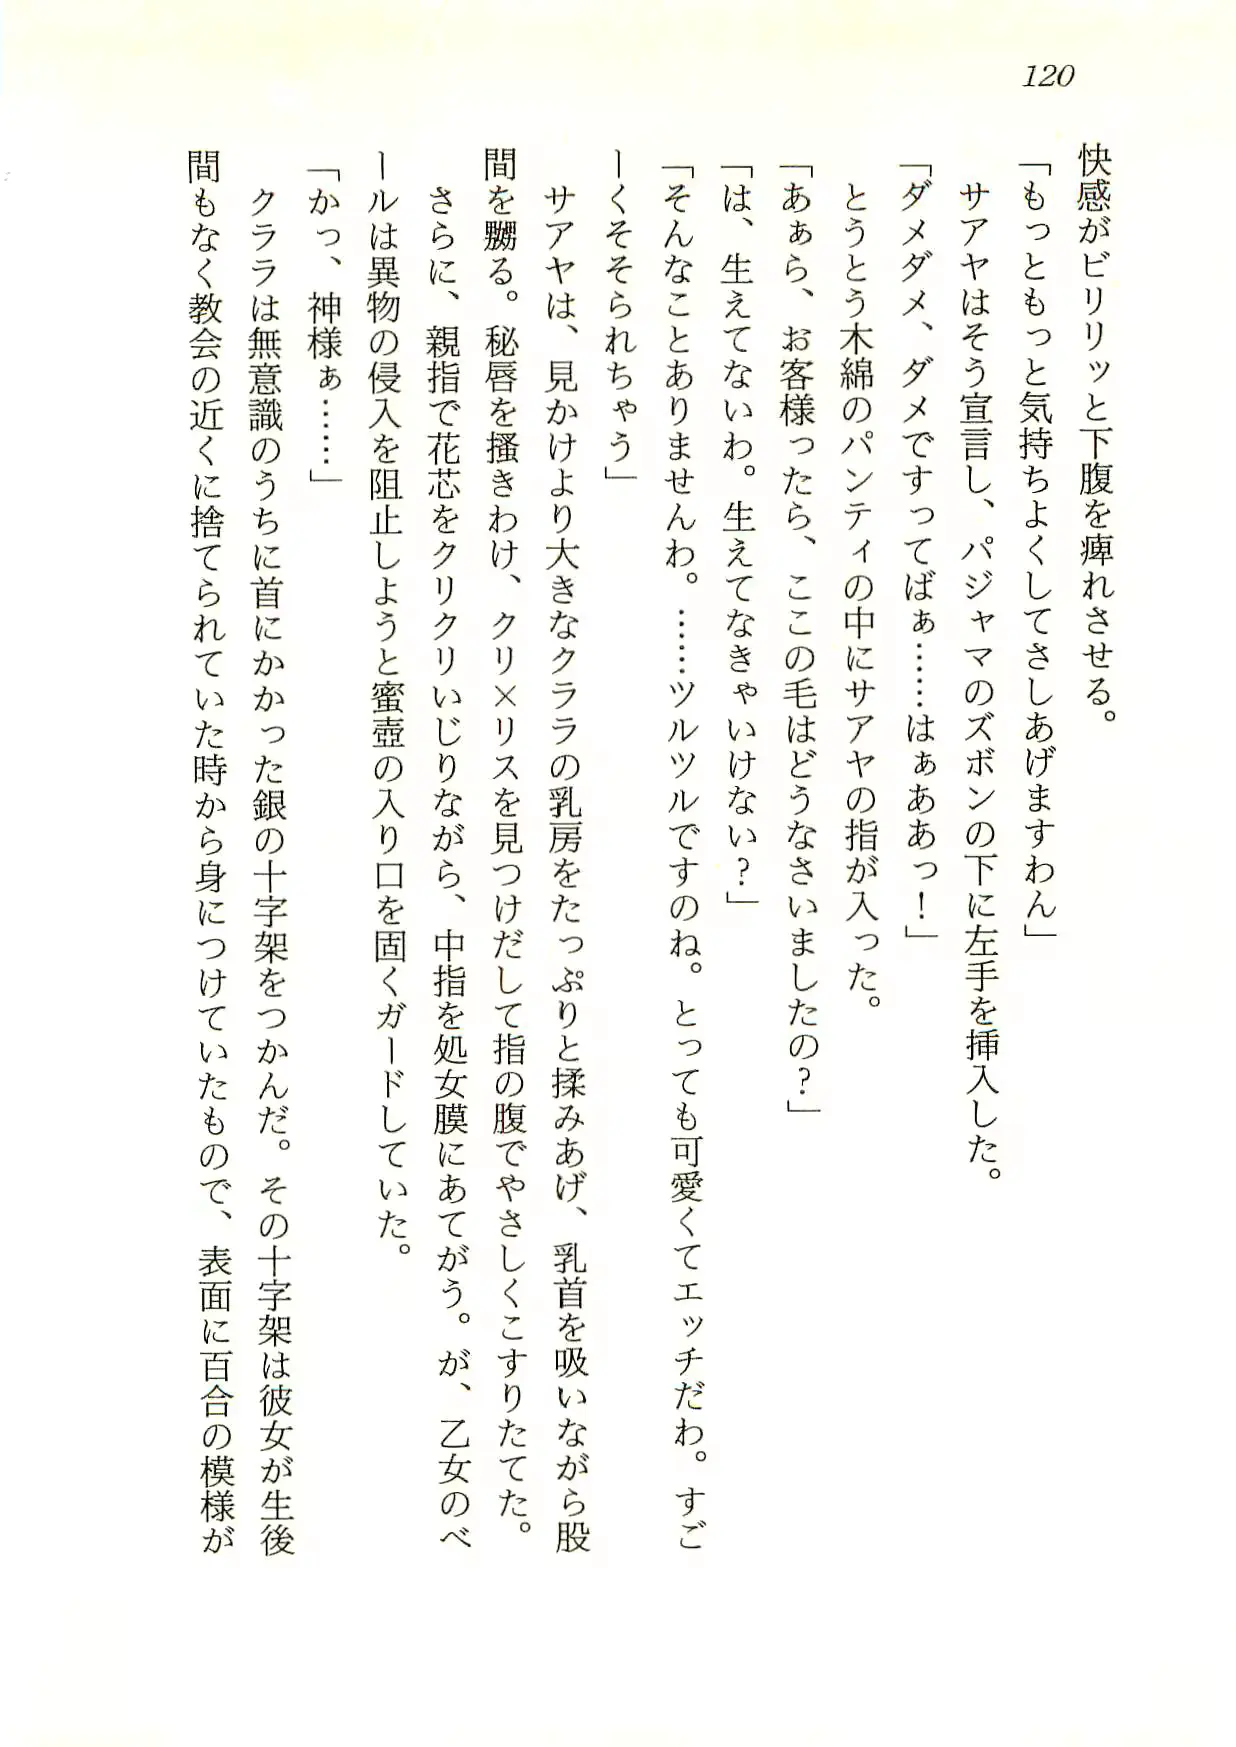 120
快感がビリリッと下腹を痺れさせる。
「もっともっと気持ちよくしてさしあげますわん」
サアヤはそう宣言し、パジャマのズボンの下に左手を挿入した。
「ダメダメ、ダメですってばぁ……はぁああっ！」
とうとう木綿のパンティの中にサアヤの指が入った。
「あぁら、お客様ったら、ここの毛はどうなさいましたの？」
「は、生えてないわ。生えてなきゃいけない？」
「そんなことありませんわ。……ツルツルですのね。とっても可愛くてエッチだわ。すご
ーくそそられちゃう」
サアヤは、見かけより大きなクララの乳房をたっぷりと揉みあげ、乳首を吸いながら股
間を嬲る。秘唇を掻きわけ、クリ×リスを見つけだして指の腹でやさしくこすりたてた。
さらに、親指で花芯をクリクリいじりながら、中指を処女膜にあてがう。が、乙女のベ
ールは異物の侵入を阻止しようと蜜壺の入り口を固くガードしていた。
「かっ、神様ぁ……」
クララは無意識のうちに首にかかった銀の十字架をつかんだ。その十字架は彼女が生後
間もなく教会の近くに捨てられていた時から身につけていたもので、表面に百合の模様が